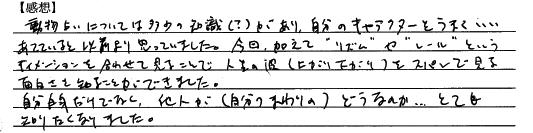 【感想】
動物占いについては多少の知識(?)があり、自分のキャラクターとうまくいい
あてていると以前より思っていました。今回、加えて"リズム"や"レール"という
ディメンションを合わせて見ることで、人生の波(上がり下がり)をスパンで見る
面白さを知ることができました。
自分自身だけでなく、他人が(自分のまわりの)どうなるのか…とても
知りたくなりました。